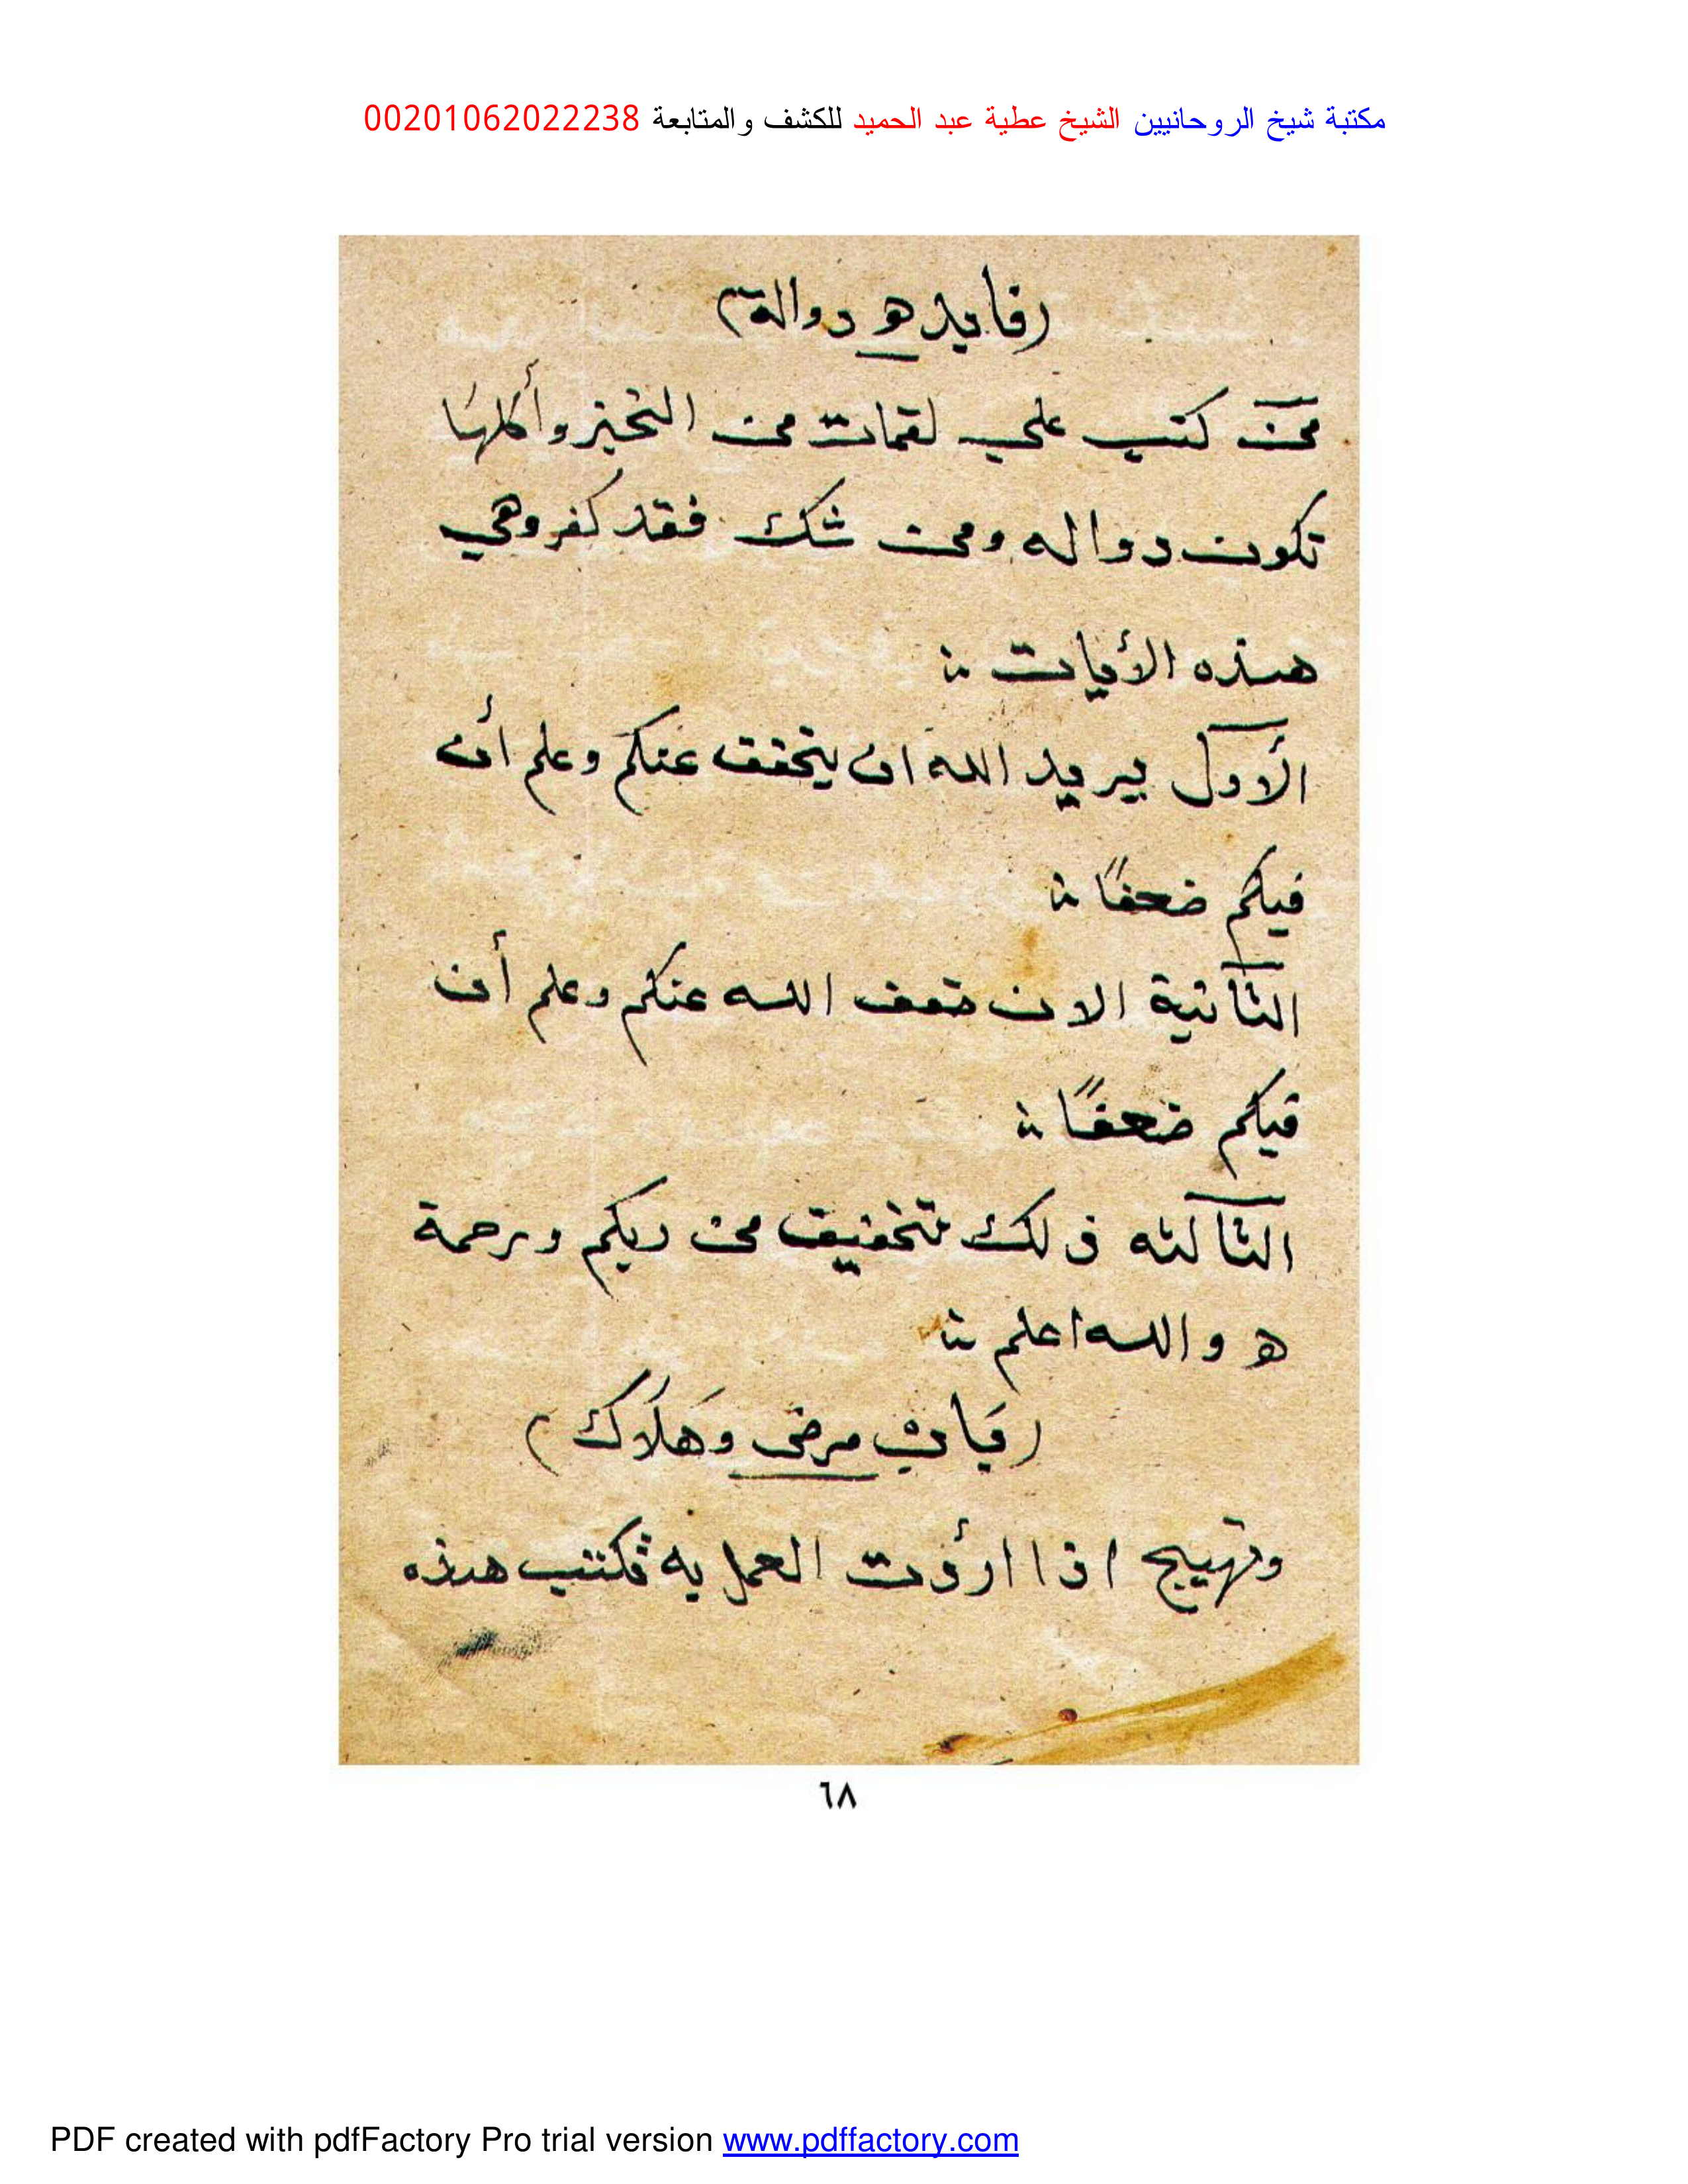 مكتبة شيخ الروحانيين الشيخ عطية عبد الحميد للكشف والمتابعة 00201062022238
(فايده دوالة)
من كتب علي لقمات من الخبز وأكلها
تكون دواله ومن شك فقد كفر وهي
هذه الأيات ∴
الأول يريد الله ان يخفف عنكم وعلم أن
فيكم ضعفًا ∴
الثانية الان خفف الله عنكم وعلم أن
فيكم ضعفًا ∴
الثالثه ذلك تخفيف من ربكم ورحمة
ه والله اعلم ∴
(باب مرض وهلاك)
وتهييج اذا اردت العمل به فكتب هذه
٦٨
PDF created with pdfFactory Pro trial version www.pdffactory.com